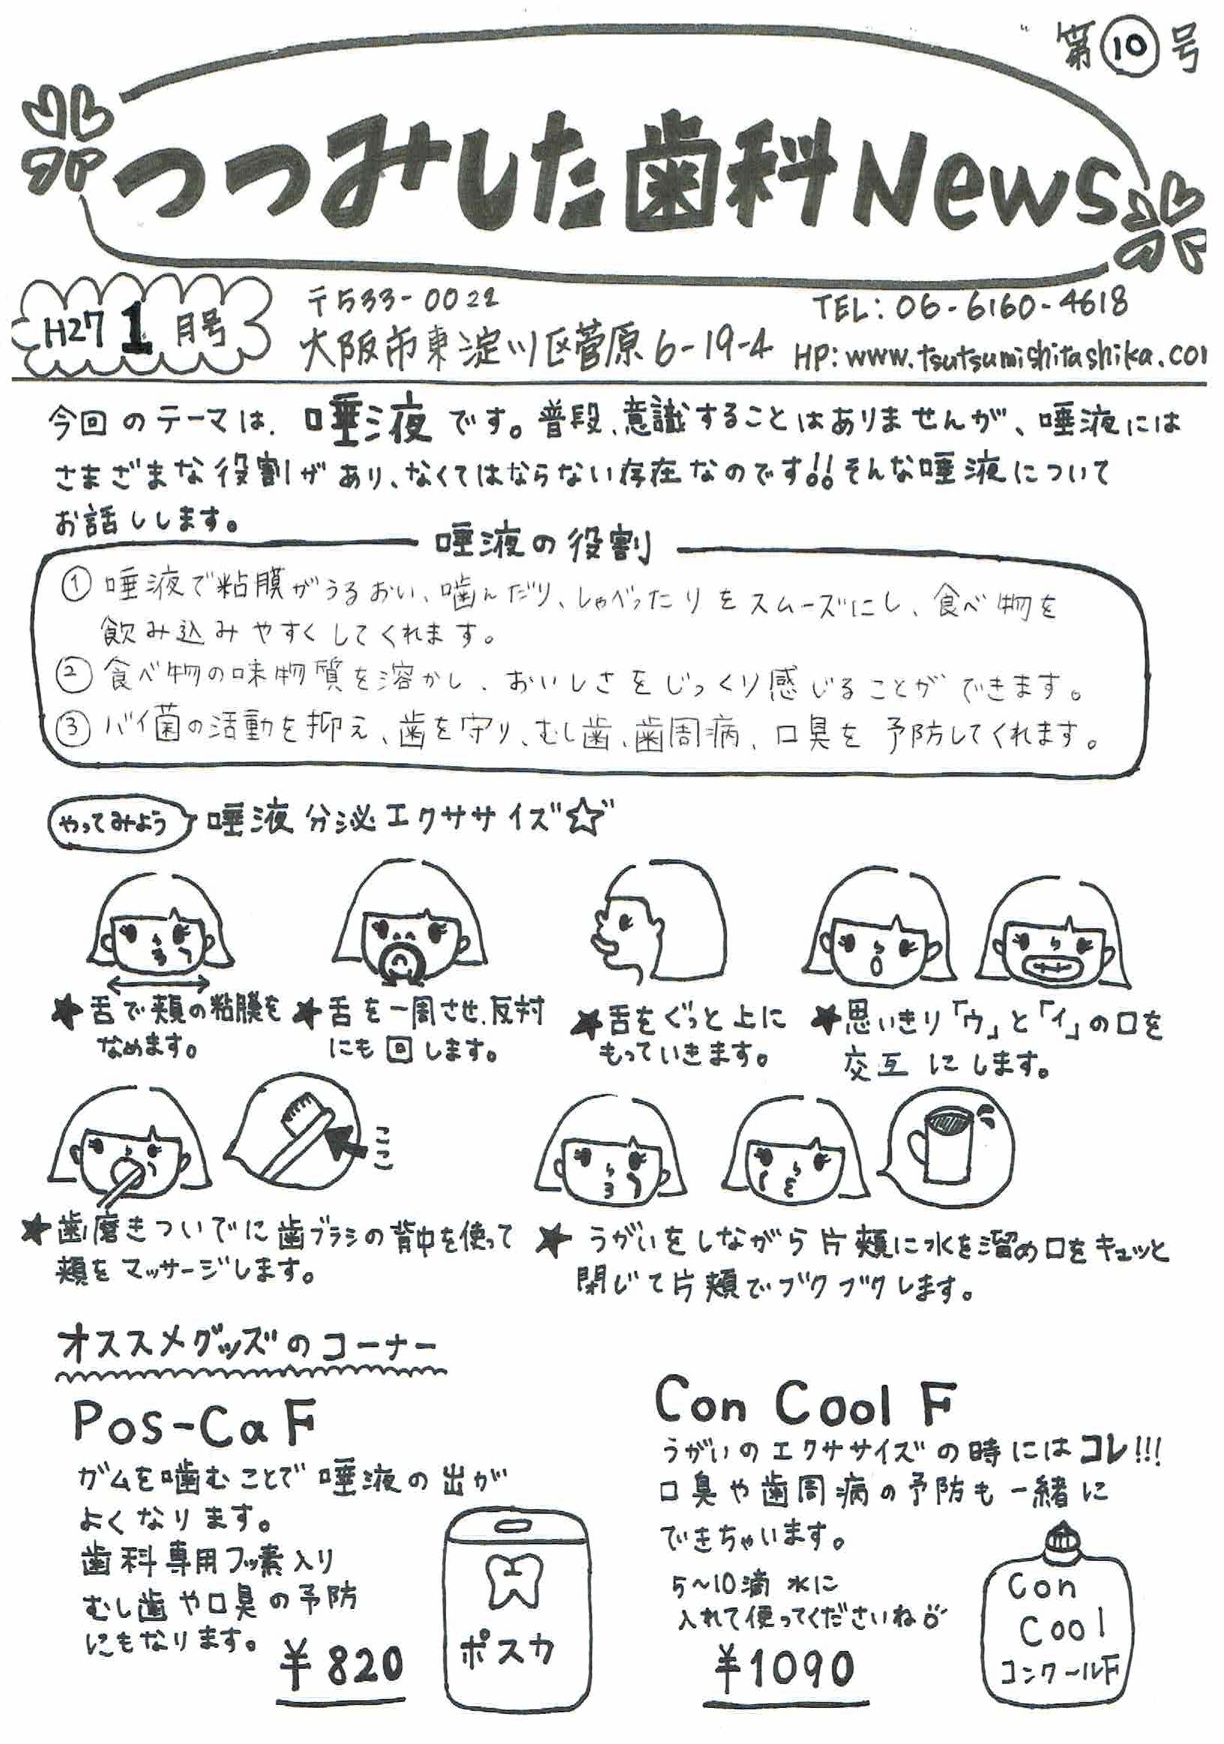 第⑩号
つつみした歯科News
H27 1月号
〒533-0022
大阪市東淀川区菅原6-19-4
TEL:06-6160-4618
HP:www.tsutsumishitashika.com
今回のテーマは、唾液です。普段、意識することはありませんが、唾液には
さまざまな役割があり、なくてはならない存在なのです!!そんな唾液について
お話しします。
唾液の役割
① 唾液で粘膜がうるおい、噛んだり、しゃべったりをスムーズにし、食べ物を
飲み込みやすくしてくれます。
② 食べ物の味物質を溶かし、おいしさをじっくり感じることができます。
③ バイ菌の活動を抑え、歯を守り、むし歯、歯周病、口臭を予防してくれます。
やってみよう 唾液分泌エクササイズ☆
★舌で頬の粘膜を
なめます。
★舌を一周させ、反対
にも回します。
★舌をぐっと上に
もっていきます。
★思いきり「ウ」と「イ」の口を
交互にします。
ここ
★歯磨きついでに歯ブラシの背中を使って
頬をマッサージします。
★うがいをしながら片頬に水を溜め口をキュッと
閉じて片頬でブクブクします。
オススメグッズのコーナー
Pos-Ca F
ガムを噛むことで唾液の出が
よくなります。
歯科専用フッ素入り
むし歯や口臭の予防
にもなります。
¥820
ポスカ
Con Cool F
うがいのエクササイズの時にはコレ!!!
口臭や歯周病の予防も一緒に
できちゃいます。
5~10滴水に
入れて使ってくださいね
¥1090
Con
Cool
コンクールF